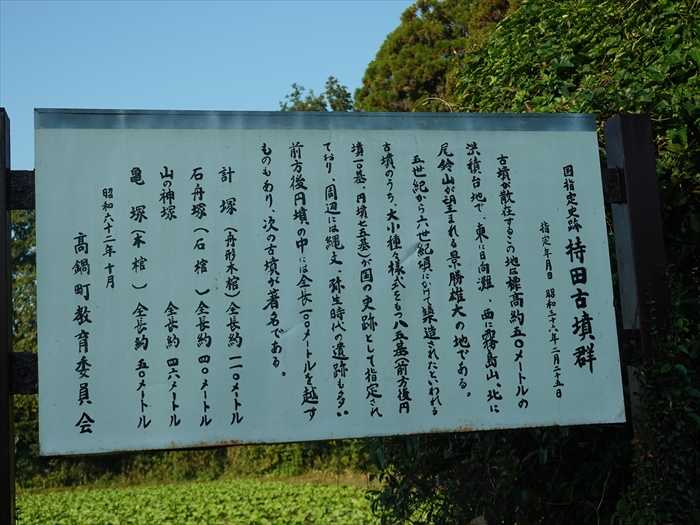 国指定史跡 持田古墳群
指定年月日 昭和三十六年二月二十五日
古墳が散在するこの地は標高約五〇メートルの
洪積台地で、東に日向灘、西に霧島山、北に
尾鈴山が望まれる景勝雄大の地である。
五世紀から六世紀頃にかけて築造されたといわれる
古墳のうち、大小種々様式をもつ八五基(前方後円
墳一〇基、円墳七五基)が国の史跡として指定され
ており、周辺には縄文、弥生時代の遺跡もある。
前方後円墳の中には全長一〇〇メートルを越す
ものもあり、次の古墳が著名である。
計塚(舟形木棺)全長約一一〇メートル
石舟塚(石棺)全長約四〇メートル
山の神塚 全長約四六メートル
亀塚(木棺)全長約五〇メートル
昭和六十二年十月
高鍋町教育委員会